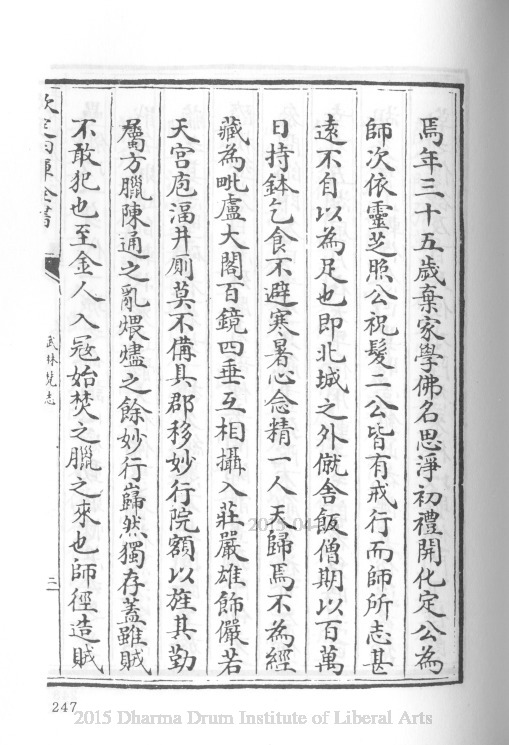 焉年三十五歲棄家學佛名思淨初禮開化定公為
師次依靈芝照公祝髮二公皆有戒行而師所志甚
遠不自以為足也即北城之外僦舍飯僧期以百萬
日持鉢乞食不避寒暑心念精一人天歸焉不為經
藏為毗盧大閣百鏡四垂互相攝入莊嚴雄飾儼若
天宮庖湢井厠莫不備具郡移妙行院額以旌其勤
屬方臘陳通之亂煨燼之餘妙行巋然獨存蓋雖賊
不敢犯也至金人入冦始焚之臘之來也師徑造賊
武林梵志
二
247
2015 Dharma Drum Institute of Liberal Arts